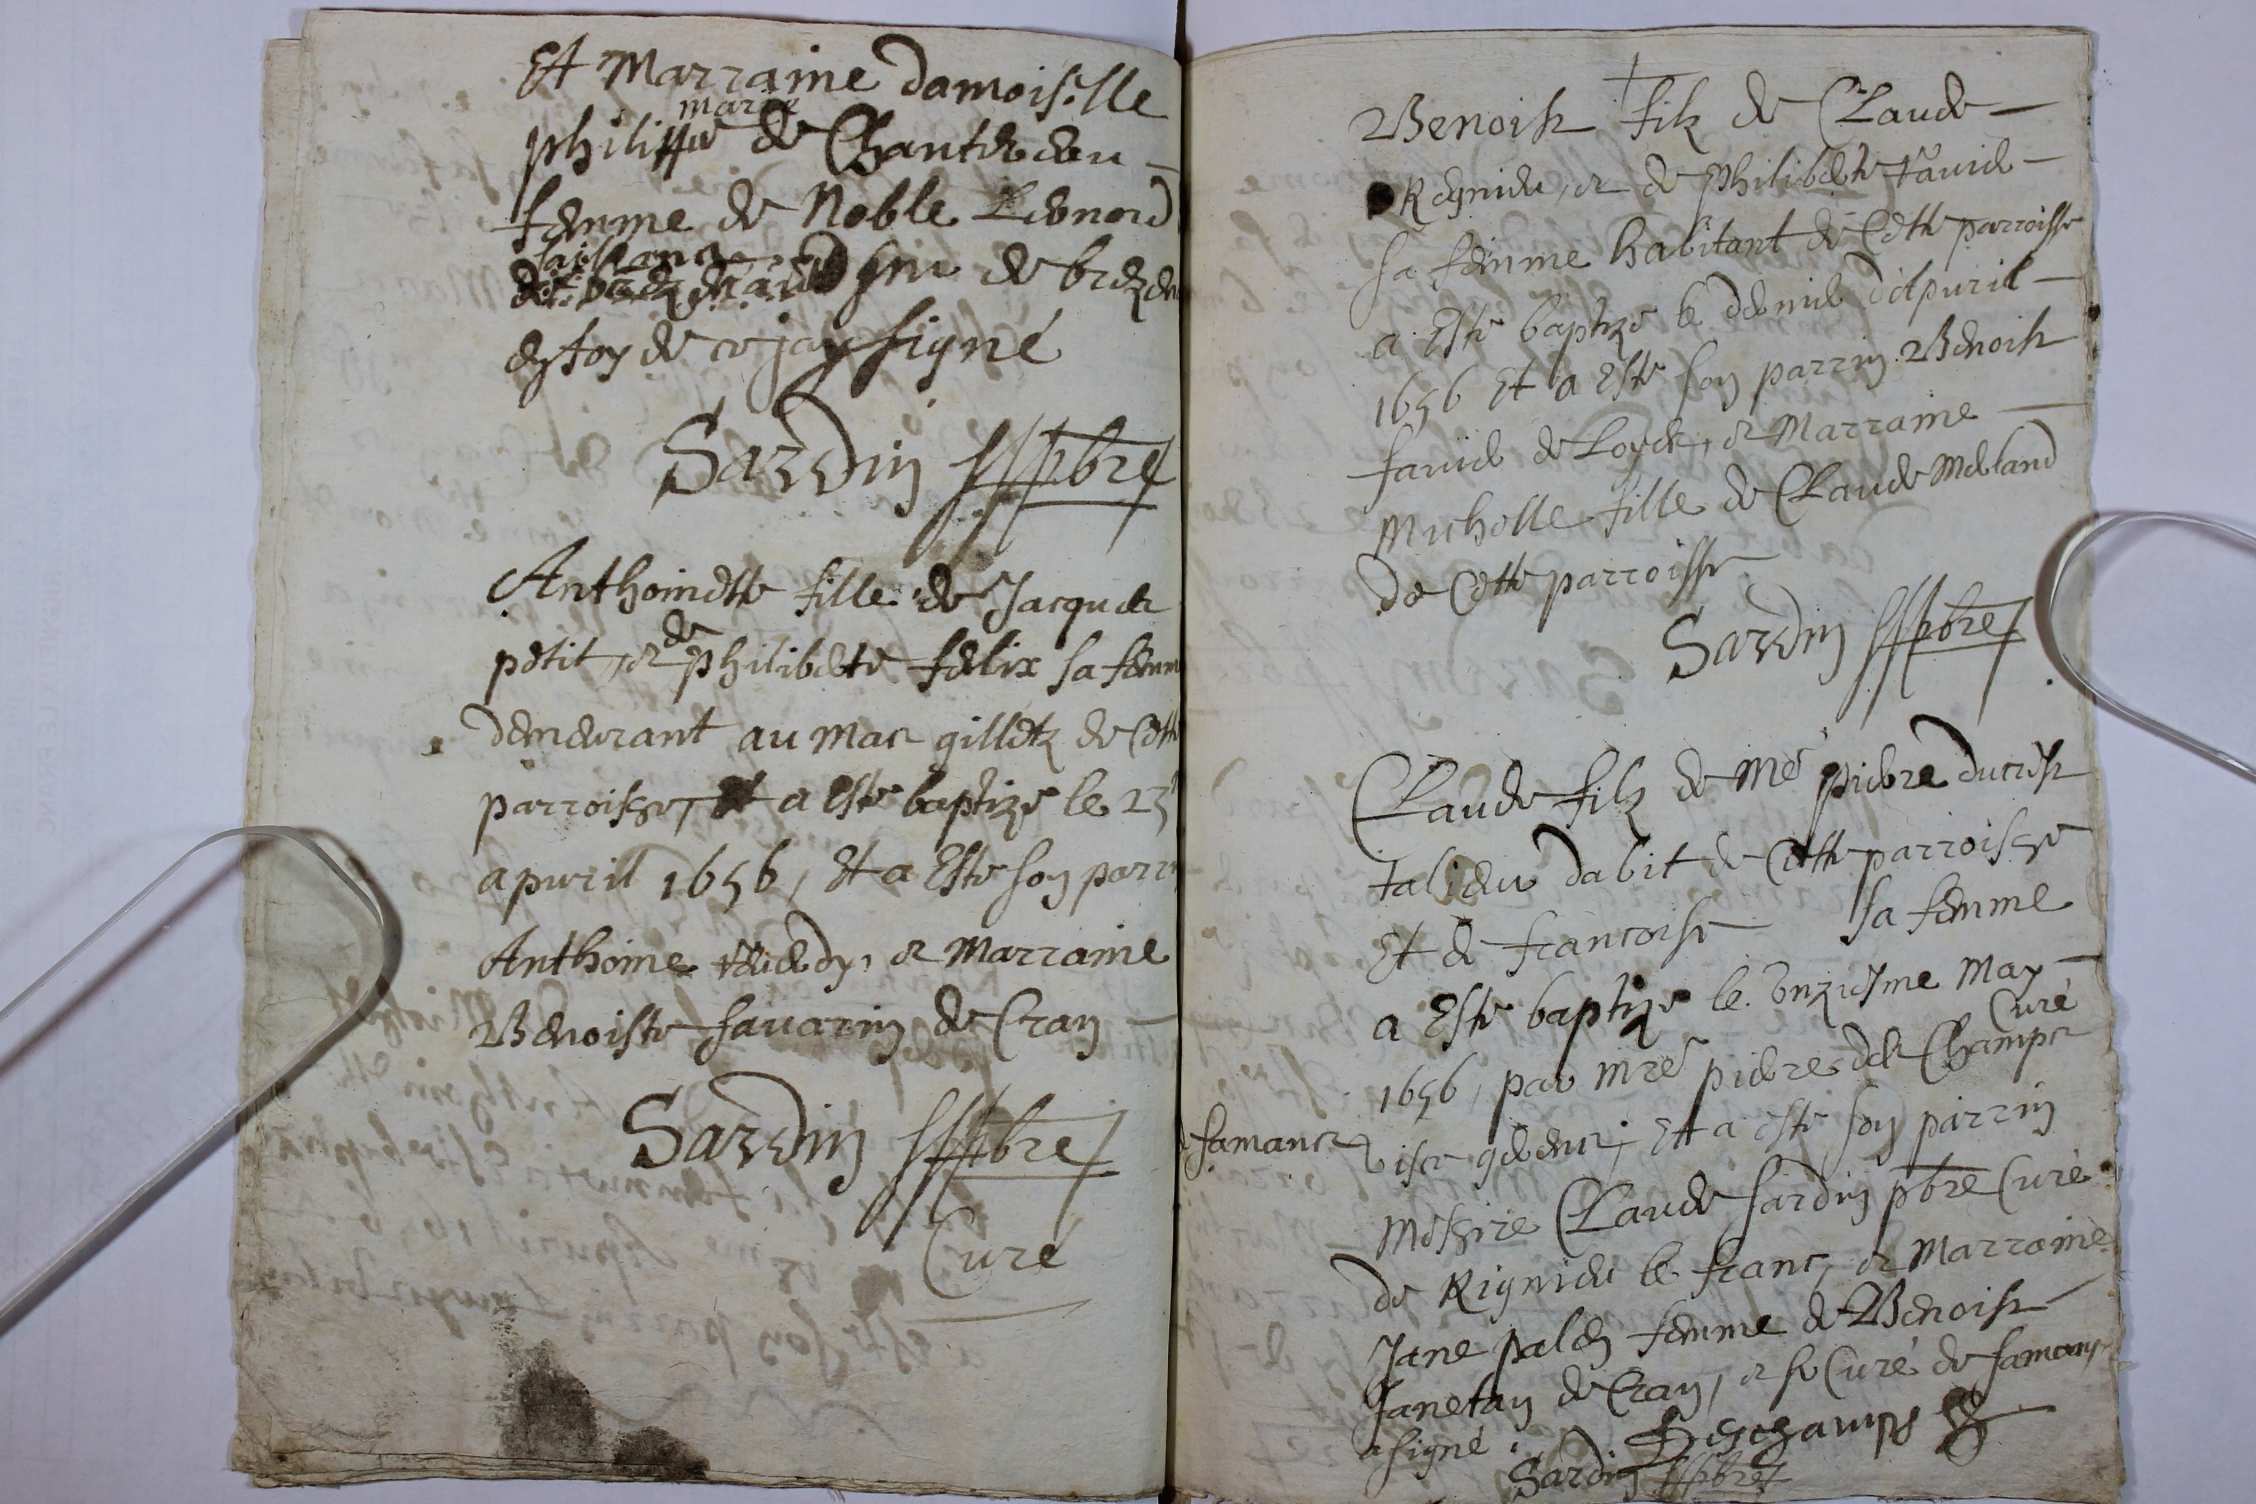 Et Marraine damoiselle
marie
philippe de Chantredeu
femme de Noble Leonord
de brez
en foy de ce jay signé
Sardin pbre
Anthoinette fille de Jacques
petit, & de philiberte felix sa femme
demeurant au mas gilletz de Cette
parroisse, Et a Este baptize le 23
apuril 1656, Et a Este son parrin
Anthoine & Marraine
Benoiste sauarin de Cran
Sardin pbre
Curé
Benoist filz de Claude
Regnieu, & de Philiberte
sa femme habitant de Cette parroisse
a Este baptize le dernier d'apuril
1656 Et a Este son parrin Benoist
de & Marraine
Micholle fille de Claude Meland
de Cette parroisse
Sardin pbre
Claude filz de Me pierre ducrest
talieur dabit de Cette parroisse
Et de francoise sa femme
a Este baptize le onziesme May
Curé
1656, par mre pierre des Champs
samans Et a este son parrin
Messire Claude sardin pbre Curé
de Rignieu le franc, & Marraine
Jane palen femme de Benoist
Janetan de Cran, & le Curé de samans
a signé Deschamps
Sardin pbre